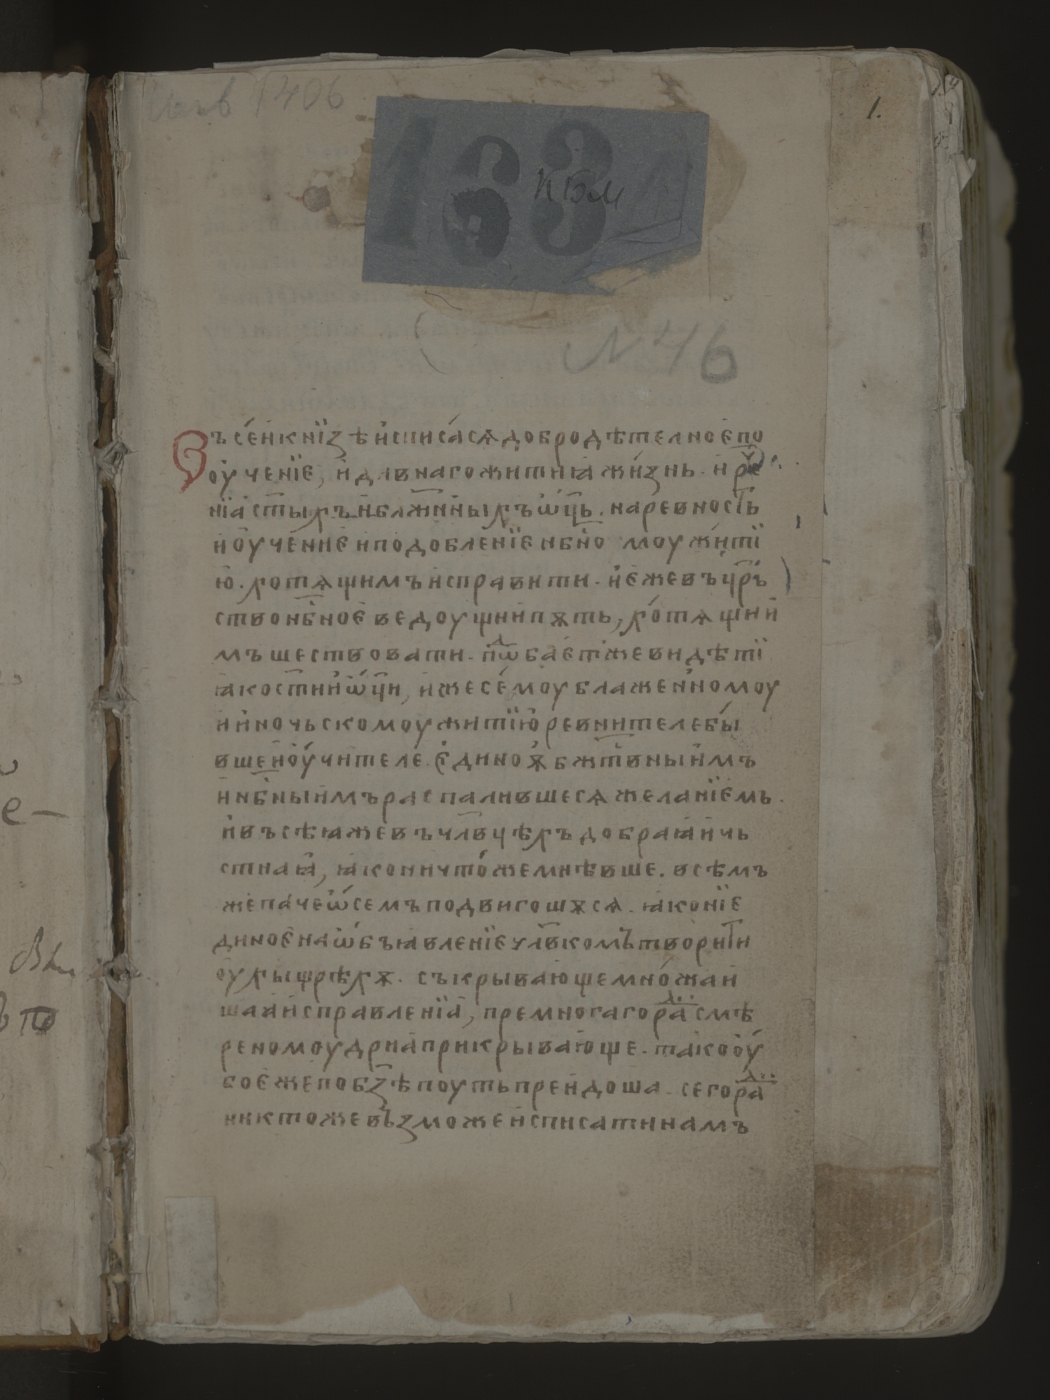 1.
163
КБМ
N 46
Въ се́й кни́зѣ и҆списа́сѧ добродѣтелное по
оученїе, и҆ дивнаго житиꙗ жи́знь. и҆ рⷱ҇е
нїа ст҃ыхъ и҆ бл҃жн҃ныхъ ѿц҃ь. на ревность
и҆ оученїе и подобленїе и бн҃омоу житї
ю. хотѧщимъ исправити. и҆же въ цр҃ь
ство нб҃ное ведоущїи пѫть, хо́тѧщїи
мъ шествовати. пѡⷣбает же видѣтї
ꙗко ст҃ии ѿц҃и, и҆же семоу блаженномоу
и҆ иночьскомоу житїю ревнителе бы
вше и҆ оу́чителе. є҆диноѫ бж҃твныимъ
и҆ нб҃ныимъ распалившесѧ желанїемъ.
и҆ въ сѣ ꙗже въ чл҃вцѣхъ добраꙗ и чь
стнаꙗ, ꙗко ничто́же мнѣвше. всѣмъ
же паче ѿ семъ подвигошѫсѧ. ꙗко нїе
дино є҆ на ѡ҆бъꙗвленїе чл҃вкомъ творити
оухыщрѣхѫ. съкрывающе множаи
шаа исправленїа, премногаго раⷣ смѣ
реномоудриа прикрывающе. тако оу́
бо є҆же по бз҃ѣ поуть преидоша. сего раⷣ
никтоже възможе исписати намъ